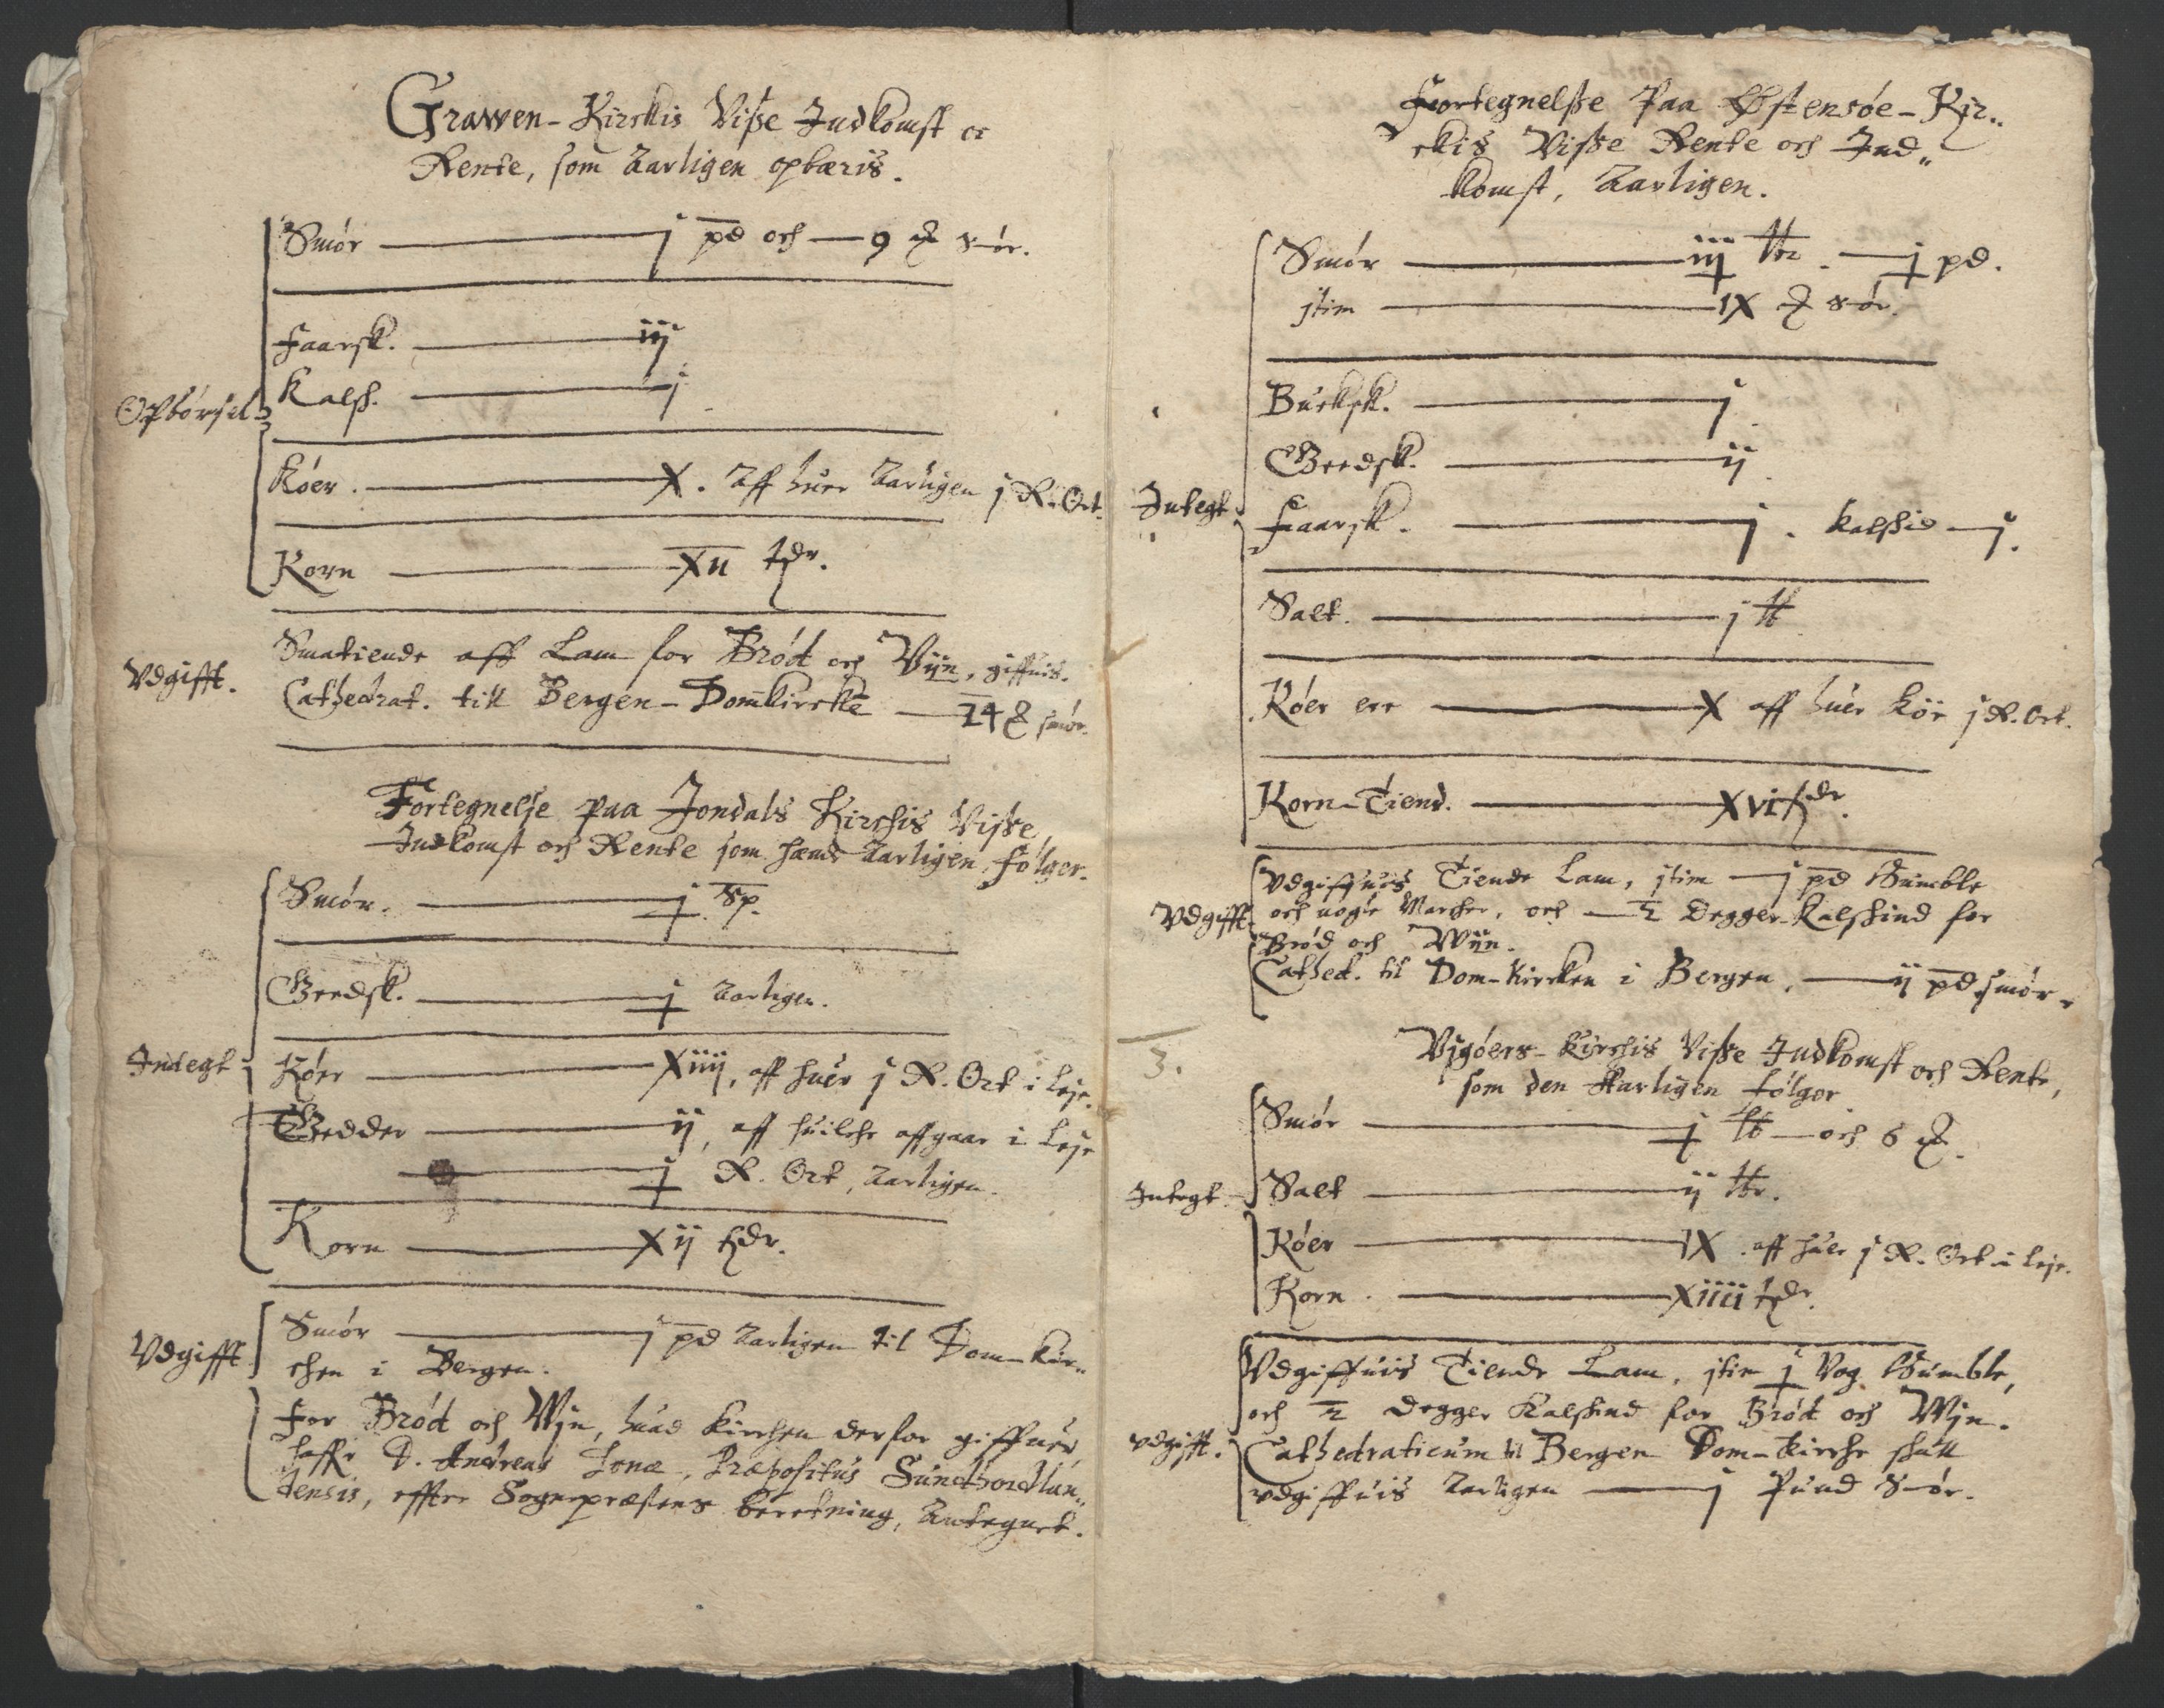 Grawen-Kirckis Visse Indkomst oc
Rente, som Aarligen opbæris.
Smør — j pd och — 9 ℔ Smør.
Faarsk. — iij
Kalsk. — j
Opbørsel
Køer. — X. Aff huer Aarligen j R. Ort.
Korn — Xii tdr.
Smatiende aff Lam for Brød och Viin, giffuis.
Vdgifft.
Cathedrat. till Bergen-Domkirche — 24 ℔ smør.
Fortegnelse paa Jondals Kirchis Visse
Indkomst och Rente som hæmd Aarligen Følger.
Smør. — j Sp.
Geedsk. — j Aarligen.
Indtegt
Køer — Xiiij, aff huer j R. Ort i Leje.
Gedder — ij, aff huilche affgaar i Leje
— j R. Ort, Aarligen.
Korn — Xij tdr.
Vdgifft
Smør — j pd Aarligen til Dom-Kir-
chen i Bergen.
For Brød och Wjn, huad Kirchen derfor giffuer
haffr D. Andreas Jonæ, Præpositus Sundhordlan-
densis, effter Sogneprestens beretning, Antegnet.
Fortegnelsse Paa Østensøe-Kir-
ckis Visse Rente och Ind-
komst, Aarligen.
Smør — iij ttr. — j pd.
jtim — IX ℔ Smør.
Bucksk. — j
Geedsk. — ij
Integt
Faarsk. — j. Kalskid — j.
Salt. — j tt
Køer ere — X aff huer Køe j R. Ort.
Korn-Tiend. — Xvi tdr.
Vdgifft
Vdgiffuis Tiende Lam, jtim — j pd Gumble
och nogle Marcker, och — ½ Degger Kalskind for
Brød och Wiin.
Cathed. til Dom-Kircken i Bergen, — ij pd smør
3.
Vigøers-Kirchis Visse Indkomst och Rente,
som den Aarligen Følger
Smør — j tt — och 6 ℔.
Integt
Salt — ij ttr.
Køer — IX. aff huer j R. Ort i Leje.
Korn. — Xiiii tdr.
Vdgiffuis Tiende Lam, jtim j Vog Gumble,
och ½ Degger Kalskind for Brød och Wjn.
vdgifft.
Cathedraticum til Bergen Dom-Kirche skall
vdgiffuis Aarligen — j Pund Smør.